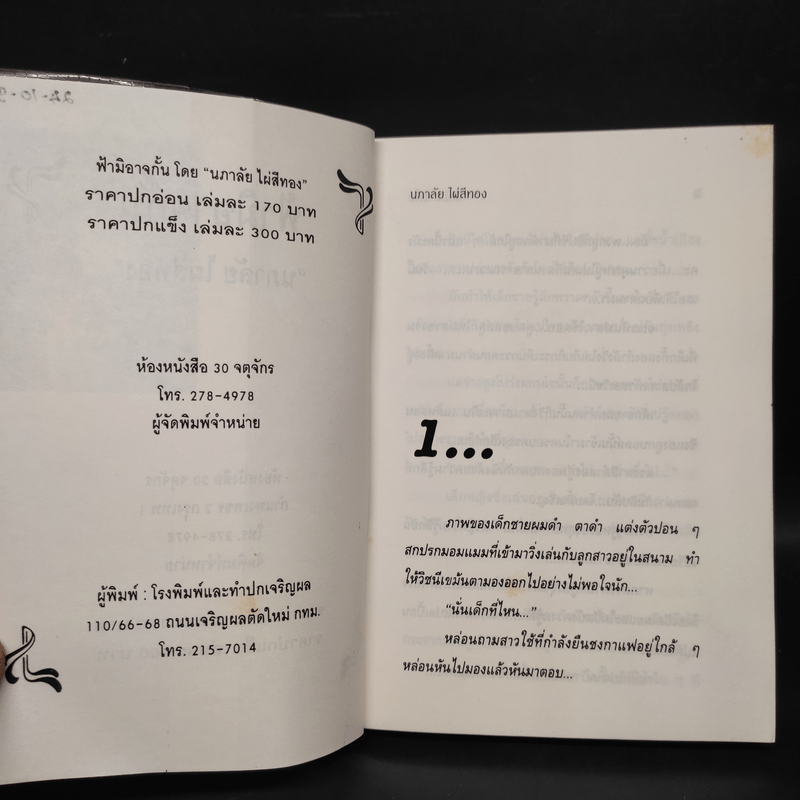 ฟ้ามิอาจกั้น โดย “นภาลัย ไผ่สีทอง”
ราคาปกอ่อน เล่มละ 170 บาท
ราคาปกแข็ง เล่มละ 300 บาท
ห้องหนังสือ 30 จตุจักร
โทร. 278-4978
ผู้จัดพิมพ์จำหน่าย
ผู้พิมพ์ : โรงพิมพ์และทำปกเจริญผล
110/66-68 ถนนเจริญผลตัดใหม่ กทม.
โทร. 215-7014
นภาลัย ไผ่สีทอง
1...
ภาพของเด็กชายผมดำ ตาดำ แต่งตัวปอน ๆ
สกปรกมอมแมมที่เข้ามาวิ่งเล่นกับลูกสาวอยู่ในสนาม ทำ
ให้วิชนีเขม้นตามองออกไปอย่างไม่พอใจนัก...
“นั่นเด็กที่ไหน...”
หล่อนถามสาวใช้ที่กำลังยืนชงกาแฟอยู่ใกล้ ๆ
หล่อนหันไปมองแล้วหันมาตอบ...